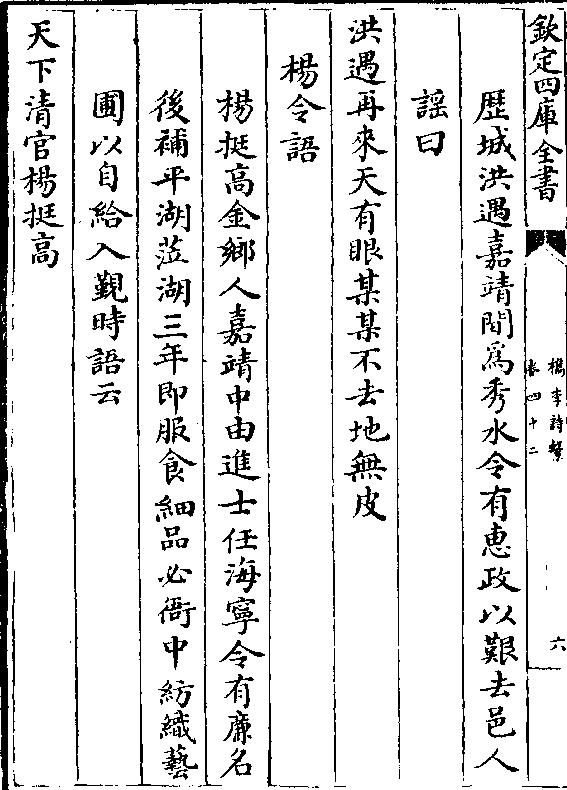 欽定四庫全書
檇李詩繫
卷四十二
六
歴城洪遇嘉靖間為秀水令有恵政以艱去邑人
謡曰
洪遇再來天有眼某某不去地無皮
楊令語
楊挺高金鄉人嘉靖中由進士任海寧令有廉名
後補平湖蒞湖三年即服食細品必衙中紡織藝
圃以自給入覲時語云
天下清官楊挺高